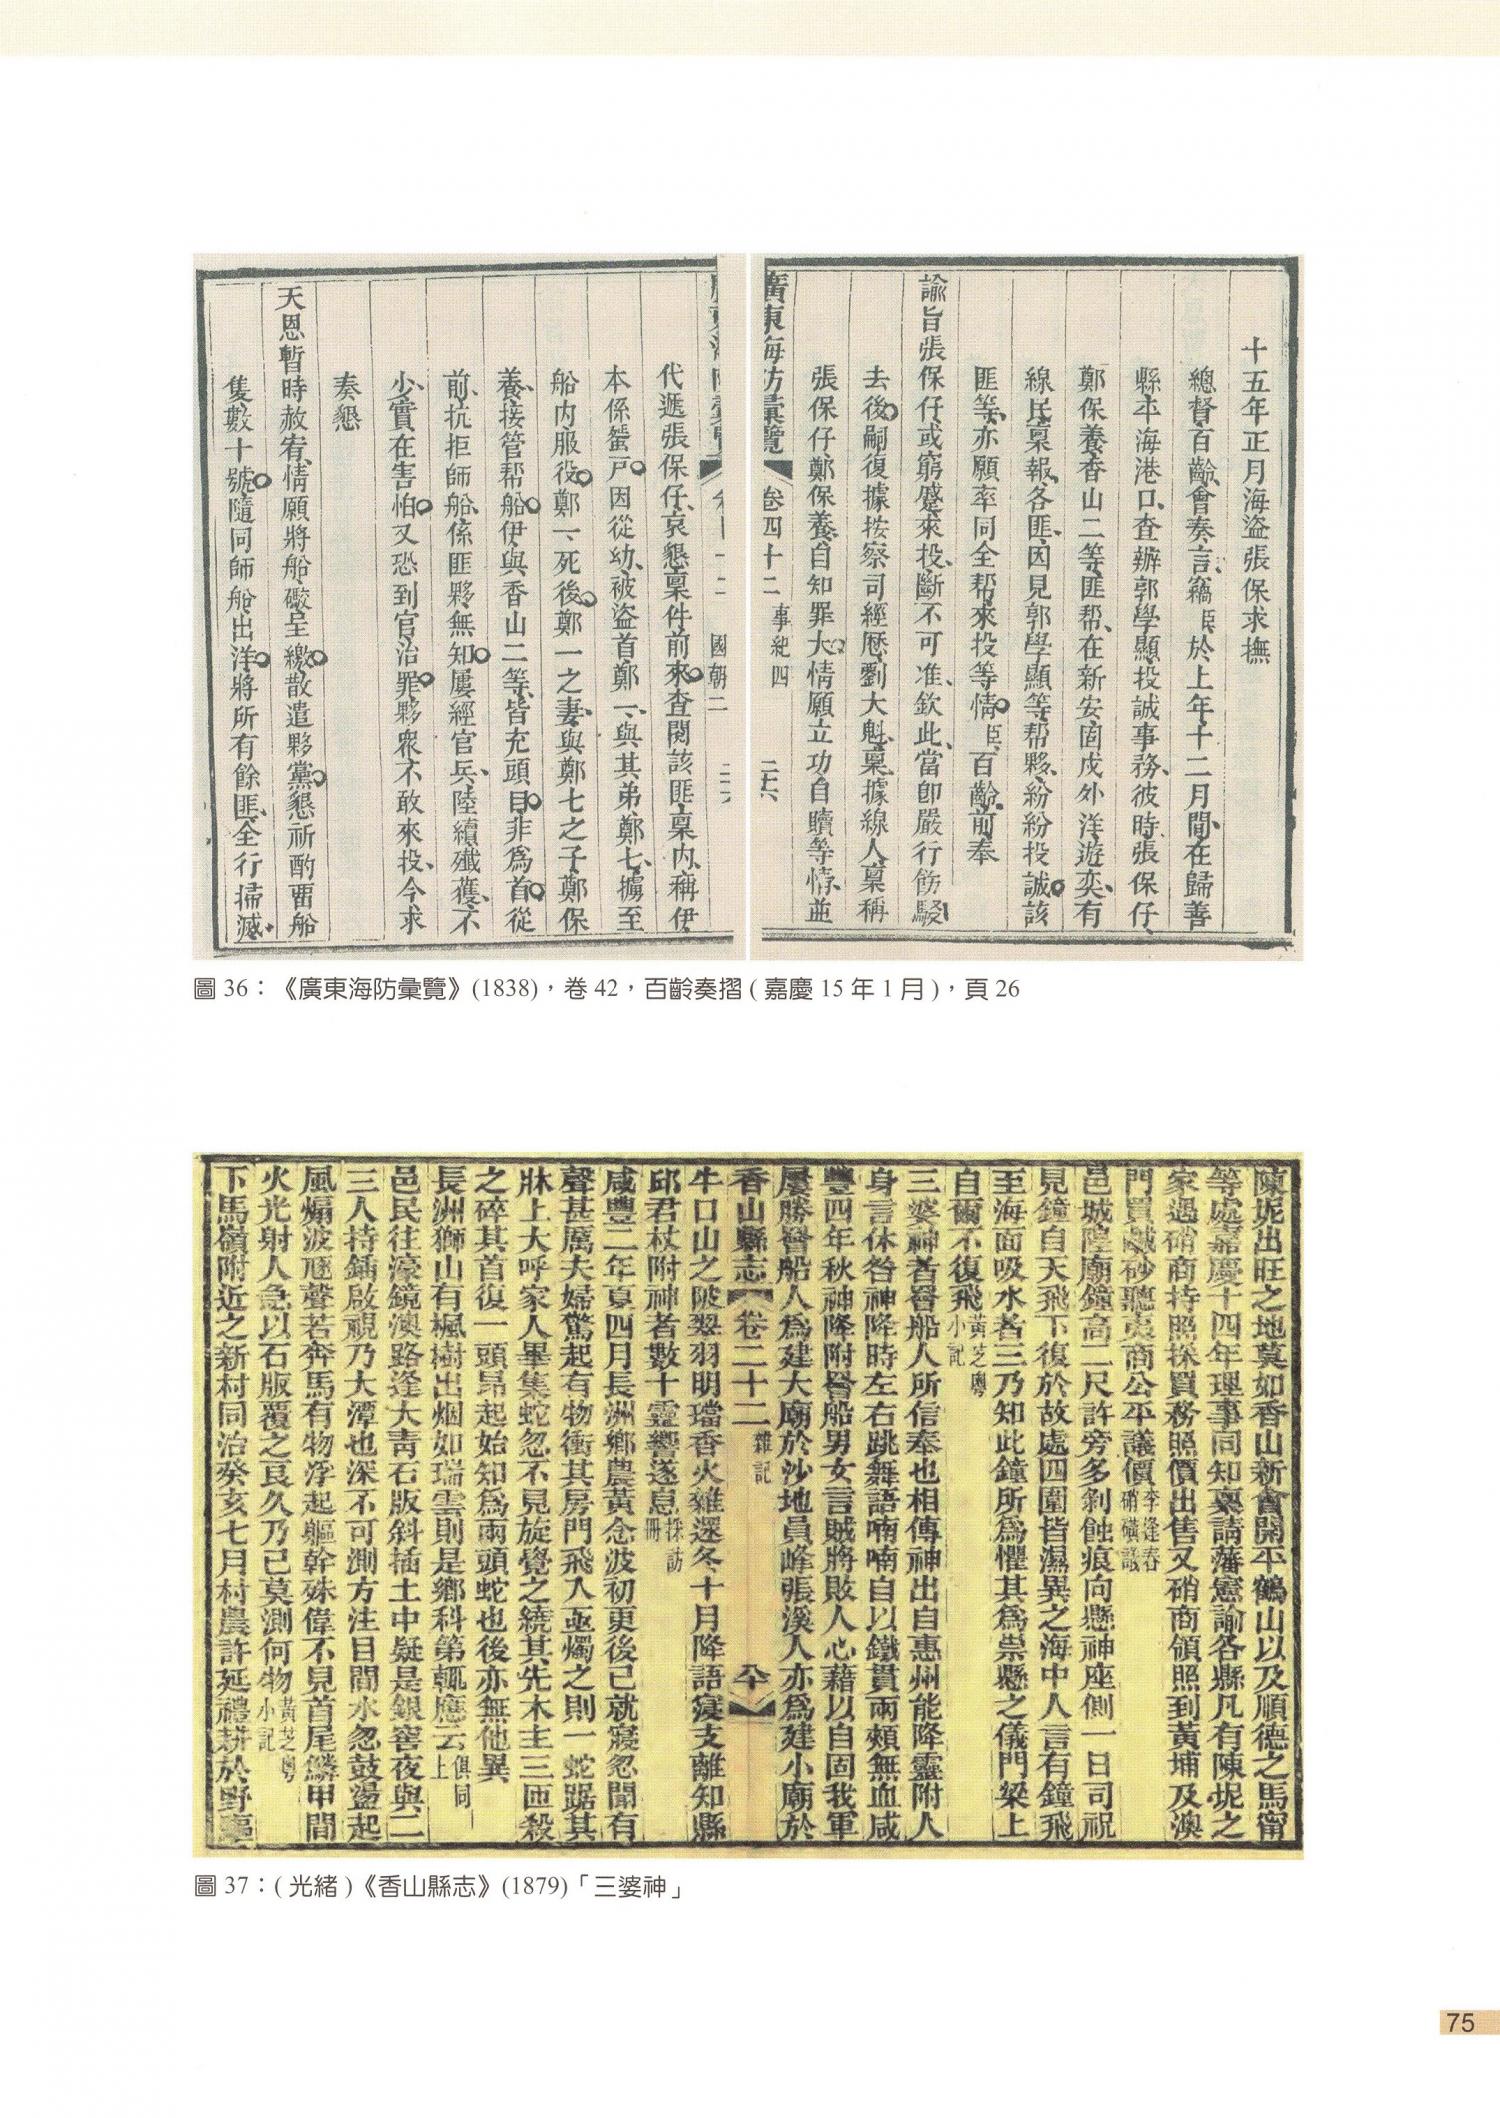 十五年正月海盜張保求撫
總督百齡會奏言竊臣於上年十二月間在歸善
縣平海港口查辦郭學顯投誠事務彼時張保仔
鄭保養香山二等匪幫在新安固戍外洋遊奕有
線民稟報各匪因見郭學顯等幫夥紛紛投誠該
匪等亦願率同全幫來投等情臣百齡前奉
諭旨張保仔或窮蹙來投斷不可准欽此當卽嚴行飭駁
去後嗣復據按察司經歷劉大魁稟據線人稟稱
張保仔鄭保養自知罪大情願立功自贖等情並
廣東海防彙覽 卷四十二 事紀四 二十六
國朝二
代遞張保仔哀懇稟件前來查閱該匪稟內稱伊
本係蜑戶因從幼被盜首鄭一與其弟鄭七擄至
船內服役鄭一死後鄭一之妻與鄭七之子鄭保
養接管幫船伊與香山二等皆充頭目非為首從
前抗拒師船係匪夥無知屢經官兵陸續殲獲不
少實在害怕又恐到官治罪夥眾不敢來投今求
奏懇
天恩暫時赦宥情願將船礮呈繳散遣夥黨懇祈酌畱船
隻數十號隨同師船出洋將所有餘匪全行掃滅
圖 36：《廣東海防彙覽》(1838)，卷 42，百齡奏摺 ( 嘉慶 15 年 1 月 )，頁 26
陳坭出旺之地莫如香山新會開平鶴山以及順德之馬甯
等處嘉慶十四年理事同知稟請藩憲諭各縣凡有陳坭之
家遇硝商持照採買務照價出售又硝商領照到黃埔及澳
門買鹹砂聽夷商公平議價李逢春硝磺議
邑城隍廟鐘高二尺許旁多剝蝕痕向懸神座側一日司祝
見鐘自天飛下復於故處四圍皆濕異之海中人言有鐘飛
至海面吸水者三乃知此鐘所為懼其為祟懸之儀門梁上
自爾不復飛黃芝粵小記
三婆神者罾船人所信奉也相傳神出自惠州能降靈附人
身言休咎神降時左右跳舞語喃喃自以鐵貫兩頰無血咸
豐四年秋神降附罾船男女言賊將敗人心藉以自固我軍
屢勝罾船人為建大廟於沙地員峰張溪人亦為建小廟於
香山縣志 卷二十二 雜記
牛口山之陂翠羽明璫香火雜遝冬十月降語寖支離知縣
邱君杖附神者數十靈響遂息採訪冊
咸豐二年夏四月長洲鄉農黃念波初更後已就寢忽聞有
聲甚厲夫婦驚起有物衝其房門飛入亟燭之則一蛇踞其
牀上大呼家人畢集蛇忽不見旋覺之繞其先木主三匝殺
之碎其首復一頭昂起始知為兩頭蛇也後亦無他異
長洲獅山有楓樹出烟如瑞雲則是鄉科第輒應云俱同上
邑民往濠鏡澳路逢大青石版斜插土中疑是銀窖夜與二
三人持鍤啟視乃大潭也深不可測方注目間水忽鼓盪起
風煽波礚聲若奔馬有物浮起軀幹殊偉不見首尾鱗甲間
火光射人急以石版覆之良久乃已莫測何物黃芝粵小記
下馬嶺附近之新村同治癸亥七月村農許延禮耕於野
圖 37：( 光緒 )《香山縣志》(1879)「三婆神」
75